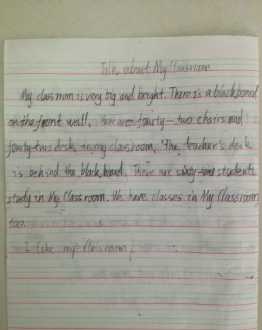 Talk about My Classroom
My classroom is very big and bright. There is a blackboard
on the front wall. There are fourty-two chairs and
fourty-two desk in my classroom. The teacher's desk
is behind the blackboard. There are sixty- students
study in My Classroom. We have classes in My Classroom
too.
I like my Classroom!